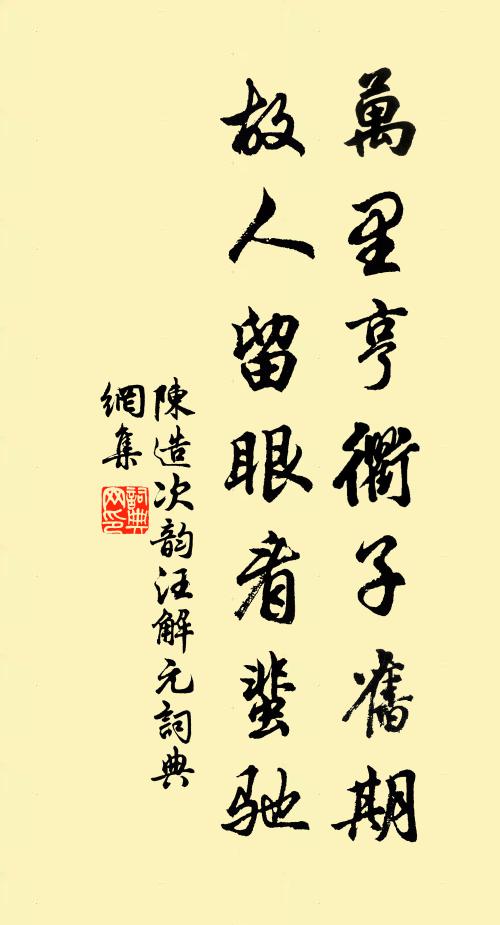 萬里亨衢子舊期
故人留眼看蜚馳
陳造次韵汪解元詞典
網集
詞典
网印